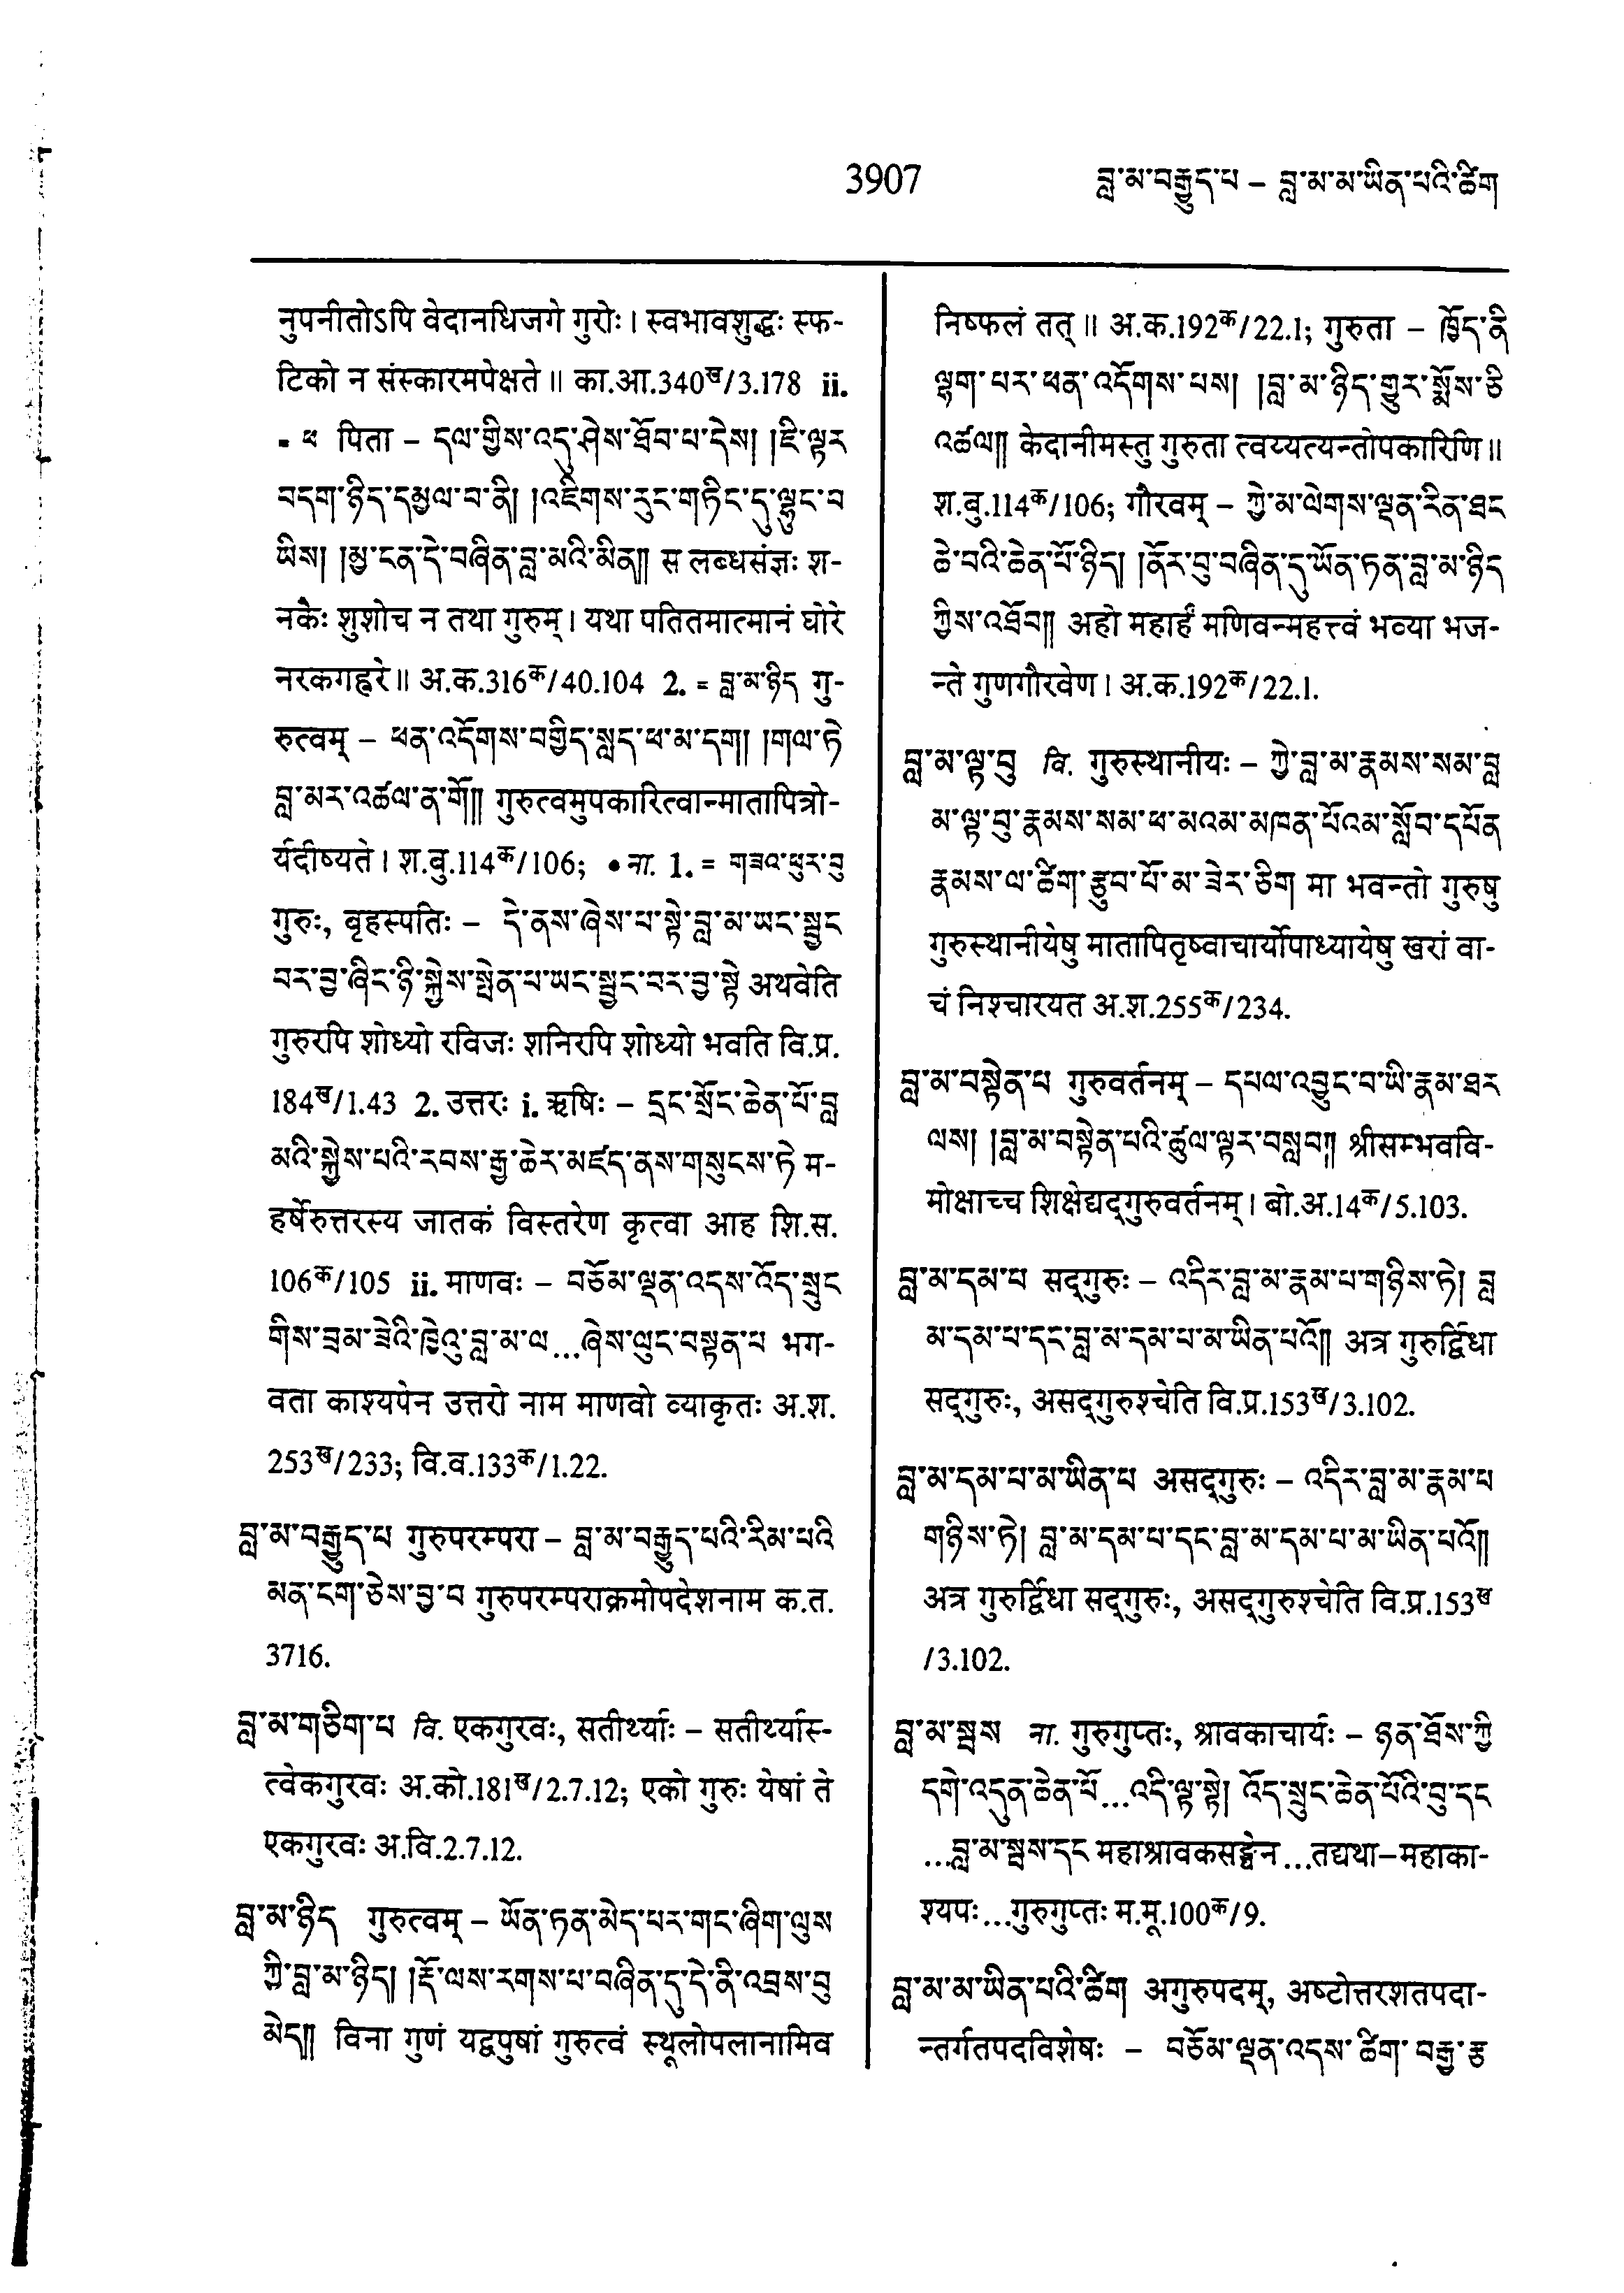 3907
བླ་མ་བརྒྱུད་པ – བླ་མ་མ་ཡིན་པའི་ཚིག
नुपनीतोऽपि वेदानधिजगे गुरोः। स्वभावशुद्धः स्फ-
टिको न संस्कारमपेक्षते॥ का.आ.340ख/3.178 ii.
= ཕ पिता – དལ་གྱིས་འདུ་ཤེས་ཐོབ་པ་དེས། །ཇི་ལྟར
བདག་ཉིད་དམྱལ་བ་ནི། །འཇིགས་རུང་གཏིང་དུ་ལྷུང་བ
ཡིས། །མྱ་ངན་དེ་བཞིན་བླ་མའི་མིན།། स लब्धसंज्ञः श-
नकैः शुशोच न तथा गुरुम्। यथा पतितमात्मानं घोरे
नरकगह्वरे॥ अ.क.316क/40.104 2. = བླ་མ་ཉིད गु-
रुत्वम् – ཕན་འདོགས་བགྱིད་སླད་ཕ་མ་དག །གལ་ཏེ
བླ་མར་འཚལ་ན་གོ།། गुरुत्वमुपकारित्वान्मातापित्रो-
र्यदीष्यते। श.बु.114क/106; • ना. 1. = གཟའ་ཕུར་བུ
गुरुः, वृहस्पतिः – དེ་ནས་ཞེས་པ་སྟེ་བླ་མ་ཡང་སྦྱང
བར་བྱ་ཞིང་ཉི་སྐྱེས་སྤེན་པ་ཡང་སྦྱང་བར་བྱ་སྟེ अथवेति
गुरुरपि शोध्यो रविजः शनिरपि शोध्यो भवति वि.प्र.
184ख/1.43 2. उत्तरः i. ऋषिः – དྲང་སྲོང་ཆེན་པོ་བླ
མའི་སྐྱེས་པའི་རབས་རྒྱ་ཆེར་མཛད་ནས་གསུངས་ཏེ म-
हर्षेरुत्तरस्य जातकं विस्तरेण कृत्वा आह शि.स.
106क/105 ii. माणवः – བཅོམ་ལྡན་འདས་འོད་སྲུང
གིས་བྲམ་ཟེའི་ཁྱེའུ་བླ་མ་ལ...ཞེས་ལུང་བསྟན་པ भग-
वता काश्यपेन उत्तरो नाम माणवो व्याकृतः अ.श.
253ख/233; वि.व.133क/1.22.
བླ་མ་བརྒྱུད་པ गुरुपरम्परा – བླ་མ་བརྒྱུད་པའི་རིམ་པའི
མན་ངག་ཅེས་བྱ་བ गुरुपरम्पराक्रमोपदेशनाम क.त.
3716.
བླ་མ་གཅིག་པ वि. एकगुरवः, सतीर्थ्याः – सतीर्थ्यास्-
त्वेकगुरवः अ.को.181ख/2.7.12; एको गुरुः येषां ते
एकगुरवः अ.वि.2.7.12.
བླ་མ་ཉིད गुरुत्वम् – ཡོན་ཏན་མེད་པར་གང་ཞིག་ལུས
ཀྱི་བླ་མ་ཉིད། །རྡོ་ལས་རགས་པ་བཞིན་དུ་དེ་ནི་འབྲས་བུ
མེད།། विना गुणं यद्वपुषां गुरुत्वं स्थूलोपलानामिव
निष्फलं तत्॥ अ.क.192क/22.1; गुरुता – ཁྱོད་ནི
ལྷག་པར་ཕན་འདོགས་པས། །བླ་མ་ཉིད་གྱུར་སྨོས་ཅི
འཚལ།། केदानीमस्तु गुरुता त्वय्यत्यन्तोपकारिणि॥
श.बु.114क/106; गौरवम् – ཀྱེ་མ་ལེགས་ལྡན་རིན་ཐང
ཆེ་བའི་ཆེན་པོ་ཉིད། །ནོར་བུ་བཞིན་དུ་ཡོན་ཏན་བླ་མ་ཉིད
ཀྱིས་འཐོབ།། अहो महार्हं मणिवन्महत्त्वं भव्या भज-
न्ते गुणगौरवेण। अ.क.192क/22.1.
བླ་མ་ལྟ་བུ वि. गुरुस्थानीयः – ཀྱེ་བླ་མ་རྣམས་སམ་བླ
མ་ལྟ་བུ་རྣམས་སམ་ཕ་མའམ་མཁན་པོའམ་སློབ་དཔོན
རྣམས་ལ་ཚིག་རྩུབ་པོ་མ་ཟེར་ཅིག मा भवन्तो गुरुषु
गुरुस्थानीयेषु मातापितृष्वाचार्योपाध्यायेषु खरां वा-
चं निश्चारयत अ.श.255क/234.
བླ་མ་བསྟེན་པ गुरुवर्तनम् – དཔལ་འབྱུང་བ་ཡི་རྣམ་ཐར
ལས། །བླ་མ་བསྟེན་པའི་ཚུལ་ལྟར་བསླབ།། श्रीसम्भववि-
मोक्षाच्च शिक्षेद्यद्गुरुवर्तनम्। बो.अ.14क/5.103.
བླ་མ་དམ་པ सद्गुरुः – འདིར་བླ་མ་རྣམ་པ་གཉིས་ཏེ། བླ
མ་དམ་པ་དང་བླ་མ་དམ་པ་མ་ཡིན་པའོ།། अत्र गुरुर्द्विधा
सद्गुरुः, असद्गुरुश्चेति वि.प्र.153ख/3.102.
བླ་མ་དམ་པ་མ་ཡིན་པ असद्गुरुः – འདིར་བླ་མ་རྣམ་པ
གཉིས་ཏེ། བླ་མ་དམ་པ་དང་བླ་མ་དམ་པ་མ་ཡིན་པའོ།།
अत्र गुरुर्द्विधा सद्गुरुः, असद्गुरुश्चेति वि.प्र.153ख
/3.102.
བླ་མ་སྦས ना. गुरुगुप्तः, श्रावकाचार्यः – ཉན་ཐོས་ཀྱི
དགེ་འདུན་ཆེན་པོ...འདི་ལྟ་སྟེ། འོད་སྲུང་ཆེན་པོའི་བུ་དང
...བླ་མ་སྦས་དང महाश्रावकसङ्घेन...तद्यथा–महाका-
श्यपः...गुरुगुप्तः म.मू.100क/9.
བླ་མ་མ་ཡིན་པའི་ཚིག अगुरुपदम्, अष्टोत्तरशतपदा-
न्तर्गतपदविशेषः – བཅོམ་ལྡན་འདས་ཚིག་བརྒྱ་རྩ